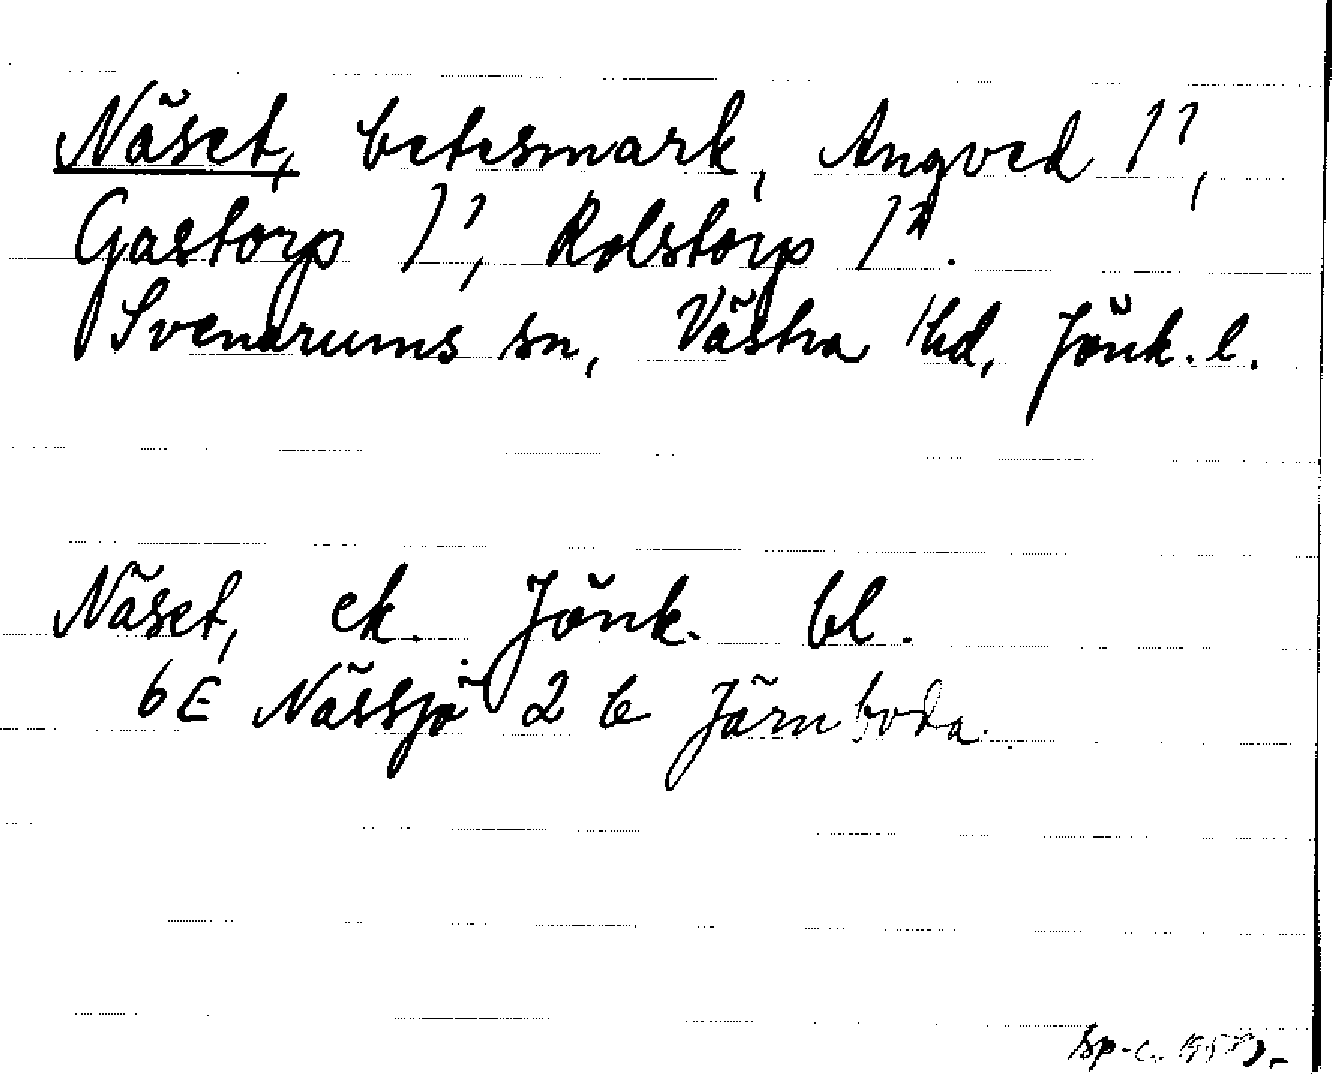 Näset, betesmark, Angved 1²,
Gastorp 1², Rolstorp 1².
Svenarums sn, Västra hd, Jönk. l.
Näset, ek. Jönk. bl.
6E Nässjö 2 b Järnboda.